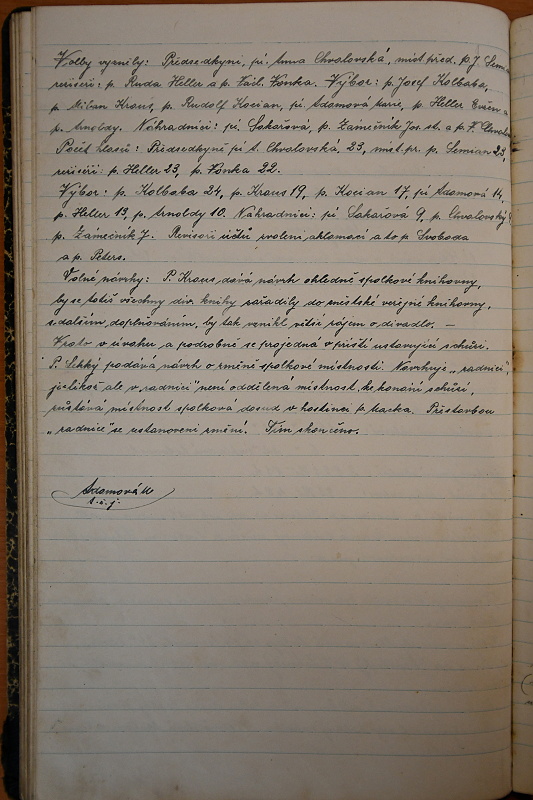 Volby vyzněly: Předsedkyní, pí. Anna Chvalovská, míst.před. p. J. Semian
režiséři: p. Ruda Heller a p. Václ. Vonka. Výbor: p. Josef Kolbaba,
p. Milan Kraus, p. Rudolf Kocian, pí. Adamová Marie, p. Heller Evžen a
p. Arnoldy. Náhradníci: pí. Sakařová, p. Zámečník Jos. st. a p. F. Chvalovský
Počet hlasů: Předsedkyně pí A. Chvalovská, 23, míst.pr. p. Semian 23,
režiséři: p. Heller 23, p. Vonka 22.
Výbor: p. Kolbaba 24, p. Kraus 19, p. Kocian 17, pí Adamová 14,
p. Heller 13, p. Arnoldy 10. Náhradníci: pí Sakařová 9, p. Chvalovský
p. Zámečník 7. Revisoři účtů zvoleni aklamací a to p. Svoboda
a p. Peters.
Volné návrhy: P. Kraus dává návrh ohledně spolkové knihovny,
by se totiž všechny div. knihy zařadily do městské veřejné knihovny,
s dalším doplňováním, by tak vznikl větší zájem o divadlo, —
Vzato v úvahu a podrobně se projedná v příští ustavující schůzi.
P. Sekký podává návrh o změně spolkové místnosti. Navrhuje „radnici",
jelikož ale v „radnici" není oddělená místnost, ke konání schůzí,
zůstává místnost spolková dosud v hostinci p. Macka. Přístavbou
„radnice" se ustanovení změní. Tím skončeno.
Adamová M
t.č. j.